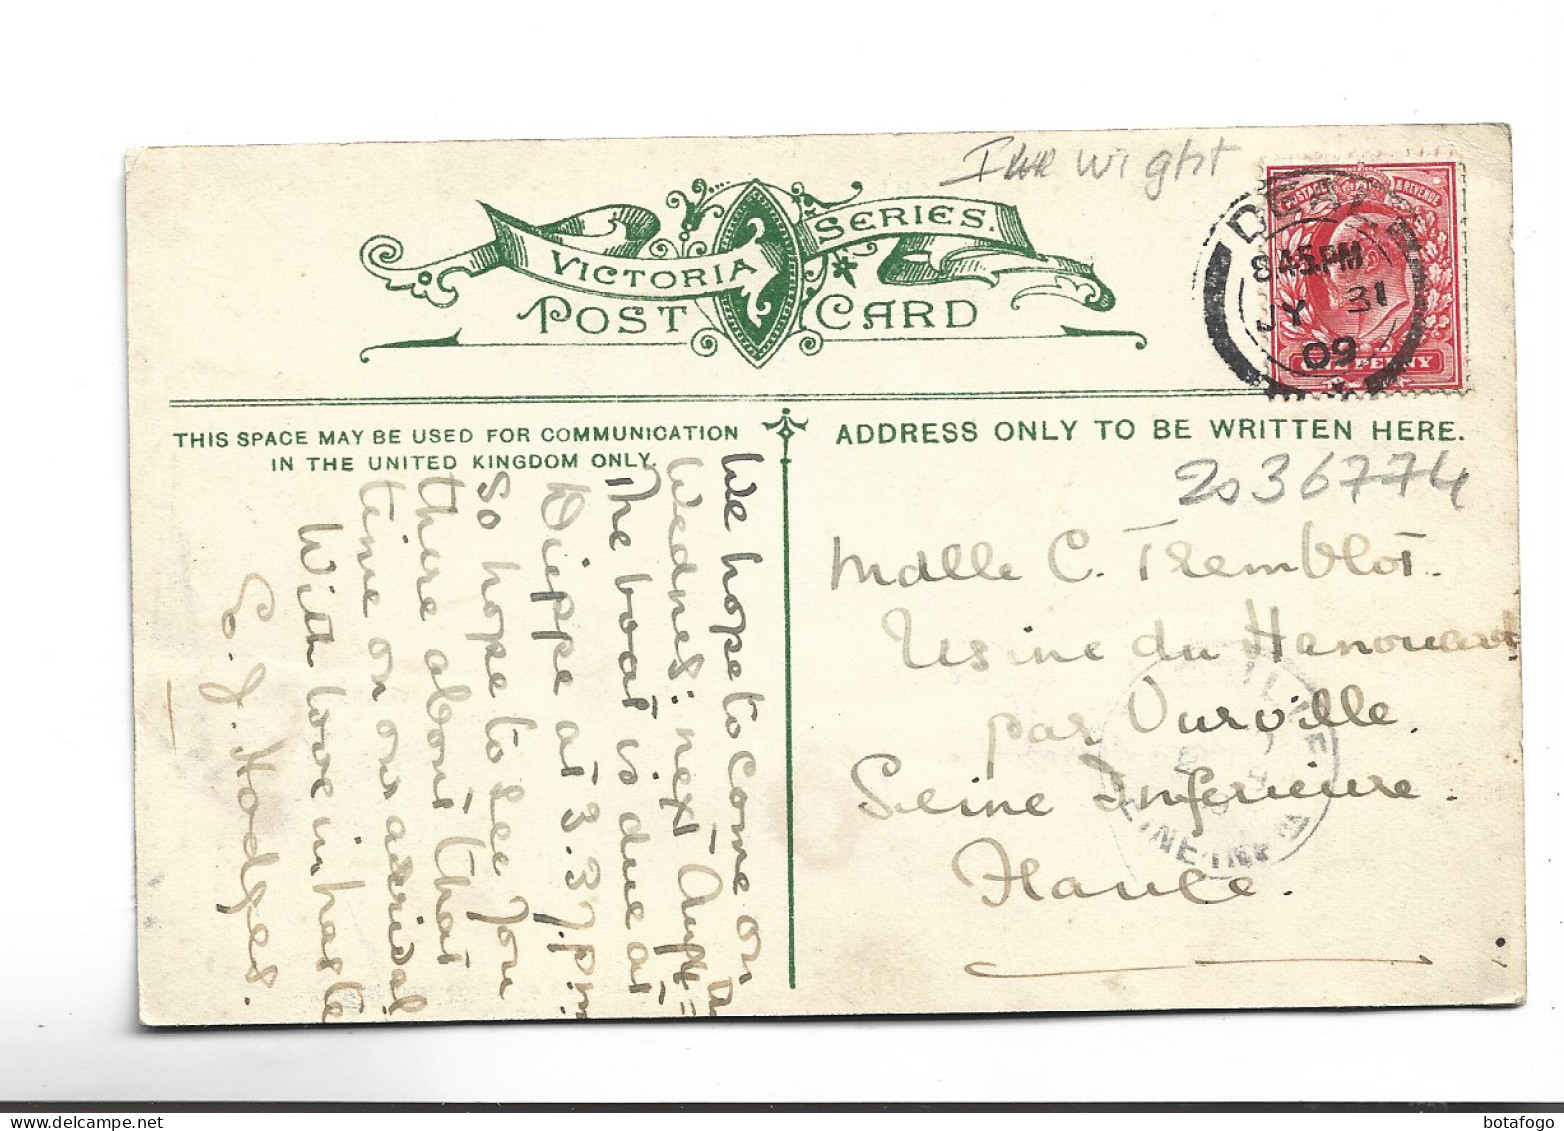 I wight
VICTORIA SERIES.
POST CARD
POSTAGE & REVENUE
ONE PENNY
DEAL
8.45 PM
JY 31
09
THIS SPACE MAY BE USED FOR COMMUNICATION
IN THE UNITED KINGDOM ONLY.
ADDRESS ONLY TO BE WRITTEN HERE.
2036774
We hope to come on
Wednes: next Aug 4=
The boat is due at
Dieppe at 3.37.p.m
so hope to see you
there about that
time on our arrival
With love in haste
E. J. Hodges.
Mdlle C. Tremblot.
Usine du Hanouard
par Ourville.
Seine Inférieure.
France.
SEINE INF
botafogo